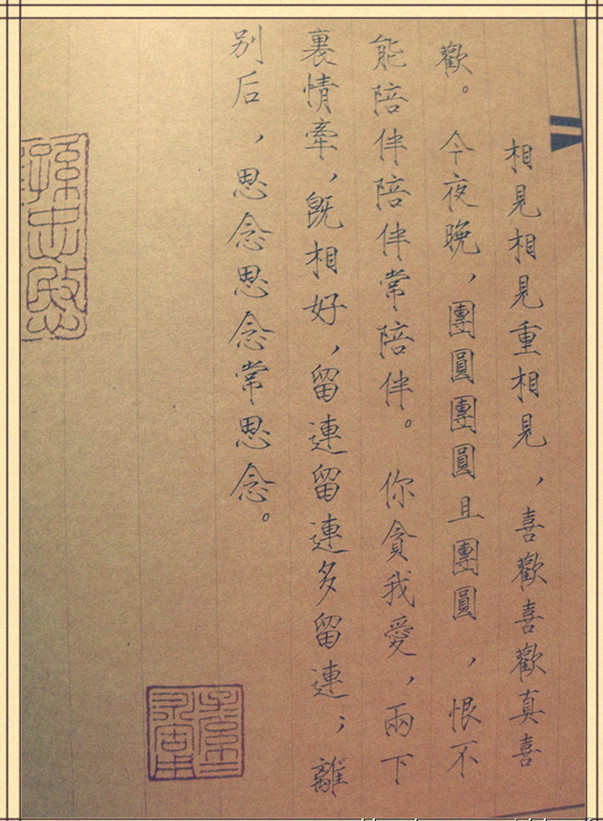 相見相見重相見，喜歡喜歡真喜
歡。今夜晚，團圓團圓且團圓，恨不
能陪伴陪伴常陪伴。你貪我愛，兩下
裏情牽，既相好，留連留連多留連；離
别后，思念思念常思念。